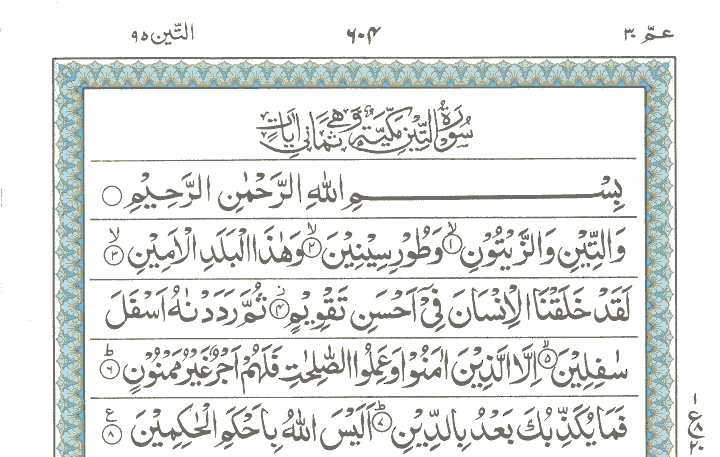 عمّ ٣٠
٦٠٤
التّين ٩٥
سُوْرَةُ التِّيْنِ مَكِّيَّةٌ وَّهِيَ ثَمَانِيْ اٰيَاتٍ
بِسْــــــــــــمِ اللهِ الرَّحْمٰنِ الرَّحِيْمِ ○
وَالتِّيْنِ وَالزَّيْتُوْنِ ۙ﴿۱﴾ وَطُوْرِ سِيْنِيْنَ ۙ﴿۲﴾ وَهٰذَا الْبَلَدِ الْاَمِيْنِ ۙ﴿۳﴾
لَقَدْ خَلَقْنَا الْاِنْسَانَ فِيْٓ اَحْسَنِ تَقْوِيْمٍ ۫﴿۴﴾ ثُمَّ رَدَدْنٰهُ اَسْفَلَ
سٰفِلِيْنَ ۙ﴿۵﴾ اِلَّا الَّذِيْنَ اٰمَنُوْا وَعَمِلُوا الصّٰلِحٰتِ فَلَهُمْ اَجْرٌ غَيْرُ مَمْنُوْنٍ ؕ﴿۶﴾
فَمَا يُكَذِّبُكَ بَعْدُ بِالدِّيْنِ ؕ﴿۷﴾ اَلَيْسَ اللهُ بِاَحْكَمِ الْحٰكِمِيْنَ ﴿۸﴾ ع
١
ع
٨
٢٠